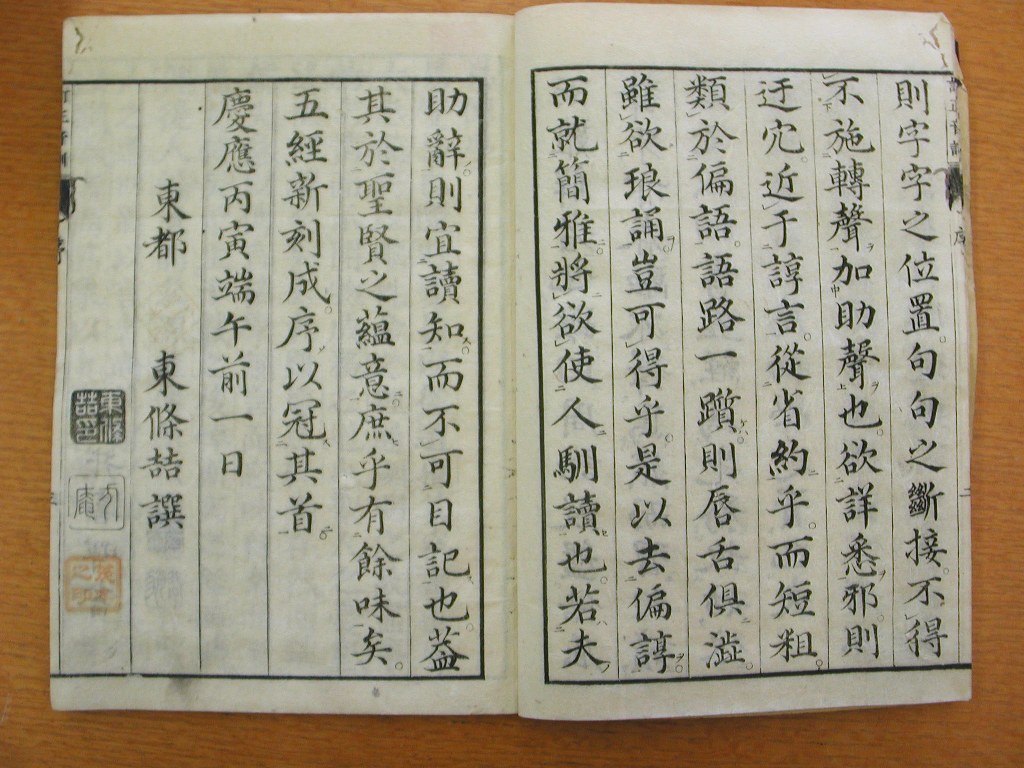 則字字之位置句句之斷接不得
不施轉聲加助聲也欲詳悉邪則
迂宂近于諄言從省約乎而短粗
類於偏語語路一躓則唇舌俱澁
雖欲琅誦豈可得乎是以去偏諄
而就簡雅將欲使人馴讀也若夫
助辭則宜讀知而不可目記也蓋
其於聖賢之蘊意庶乎有餘味矣
五經新刻成序以冠其首
慶應丙寅端午前一日
東都　東條喆譔
東條
喆印